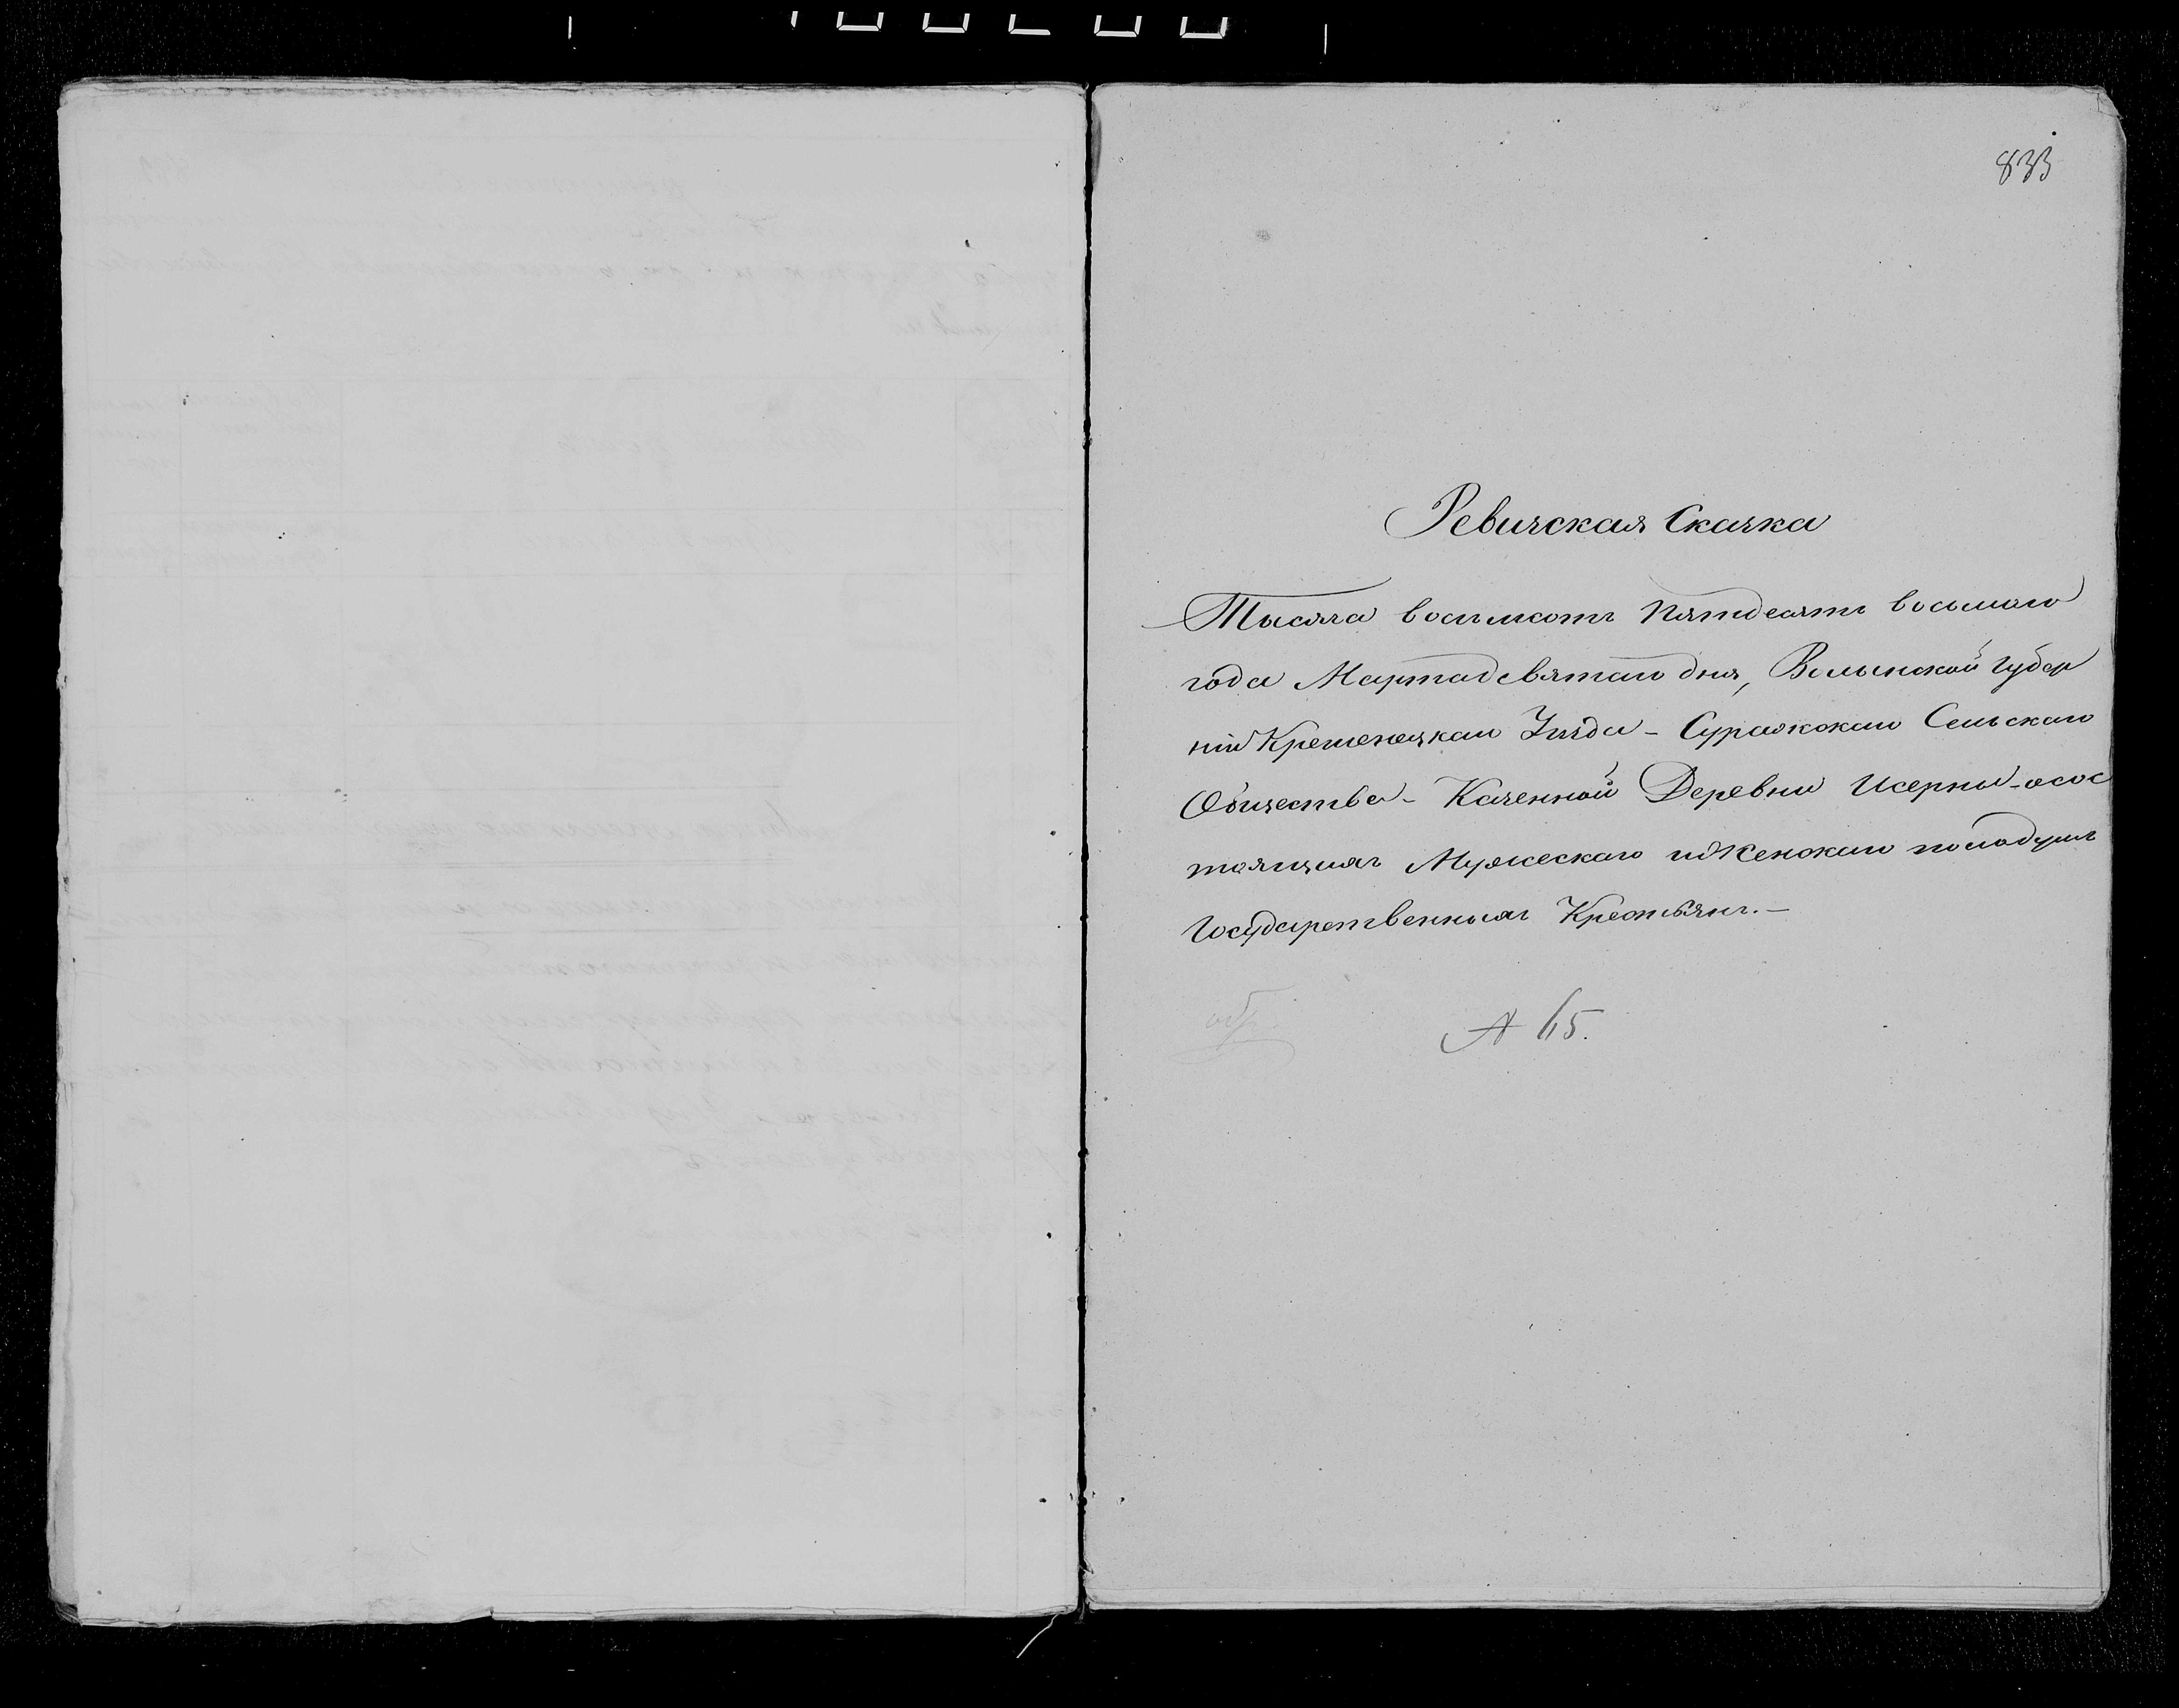 833
Ревизская Сказка
Тысяча восемьсотъ Пятдесятъ восьмаго
года Марта девятаго дня, Волынской Губер
ніи Кременецкаго Уѣзда - Суражскаго Сельскаго
Общества - Казенной Деревни Исерны - осос
тоящихъ Мужескаго и Женскаго пола душъ
Государственныхъ Крестьянъ. -
обр.
А 65.